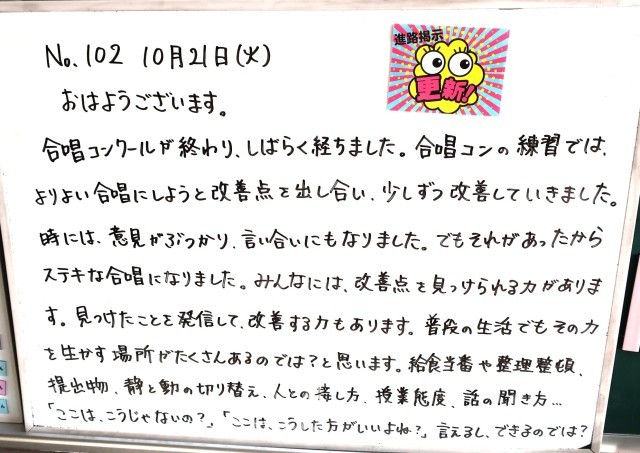 No.102 10月21日(火)
進路掲示
更新!
おはようございます。
合唱コンクールが終わり、しばらく経ちました。合唱コンの練習では、
よりよい合唱にしようと改善点を出し合い、少しずつ改善していきました。
時には、意見がぶつかり、言い合いにもなりました。でもそれがあったから
ステキな合唱になりました。みんなには、改善点を見つけられる力がありま
す。見つけたことを発信して、改善する力もあります。普段の生活でもその力
を生かす場所がたくさんあるのでは?と思います。給食当番や整理整頓、
提出物、静と動の切り替え、人との接し方、授業態度、話の聞き方…
「ここは、こうじゃないの?」「ここは、こうした方がいいよね?」言えるし、できるのでは?